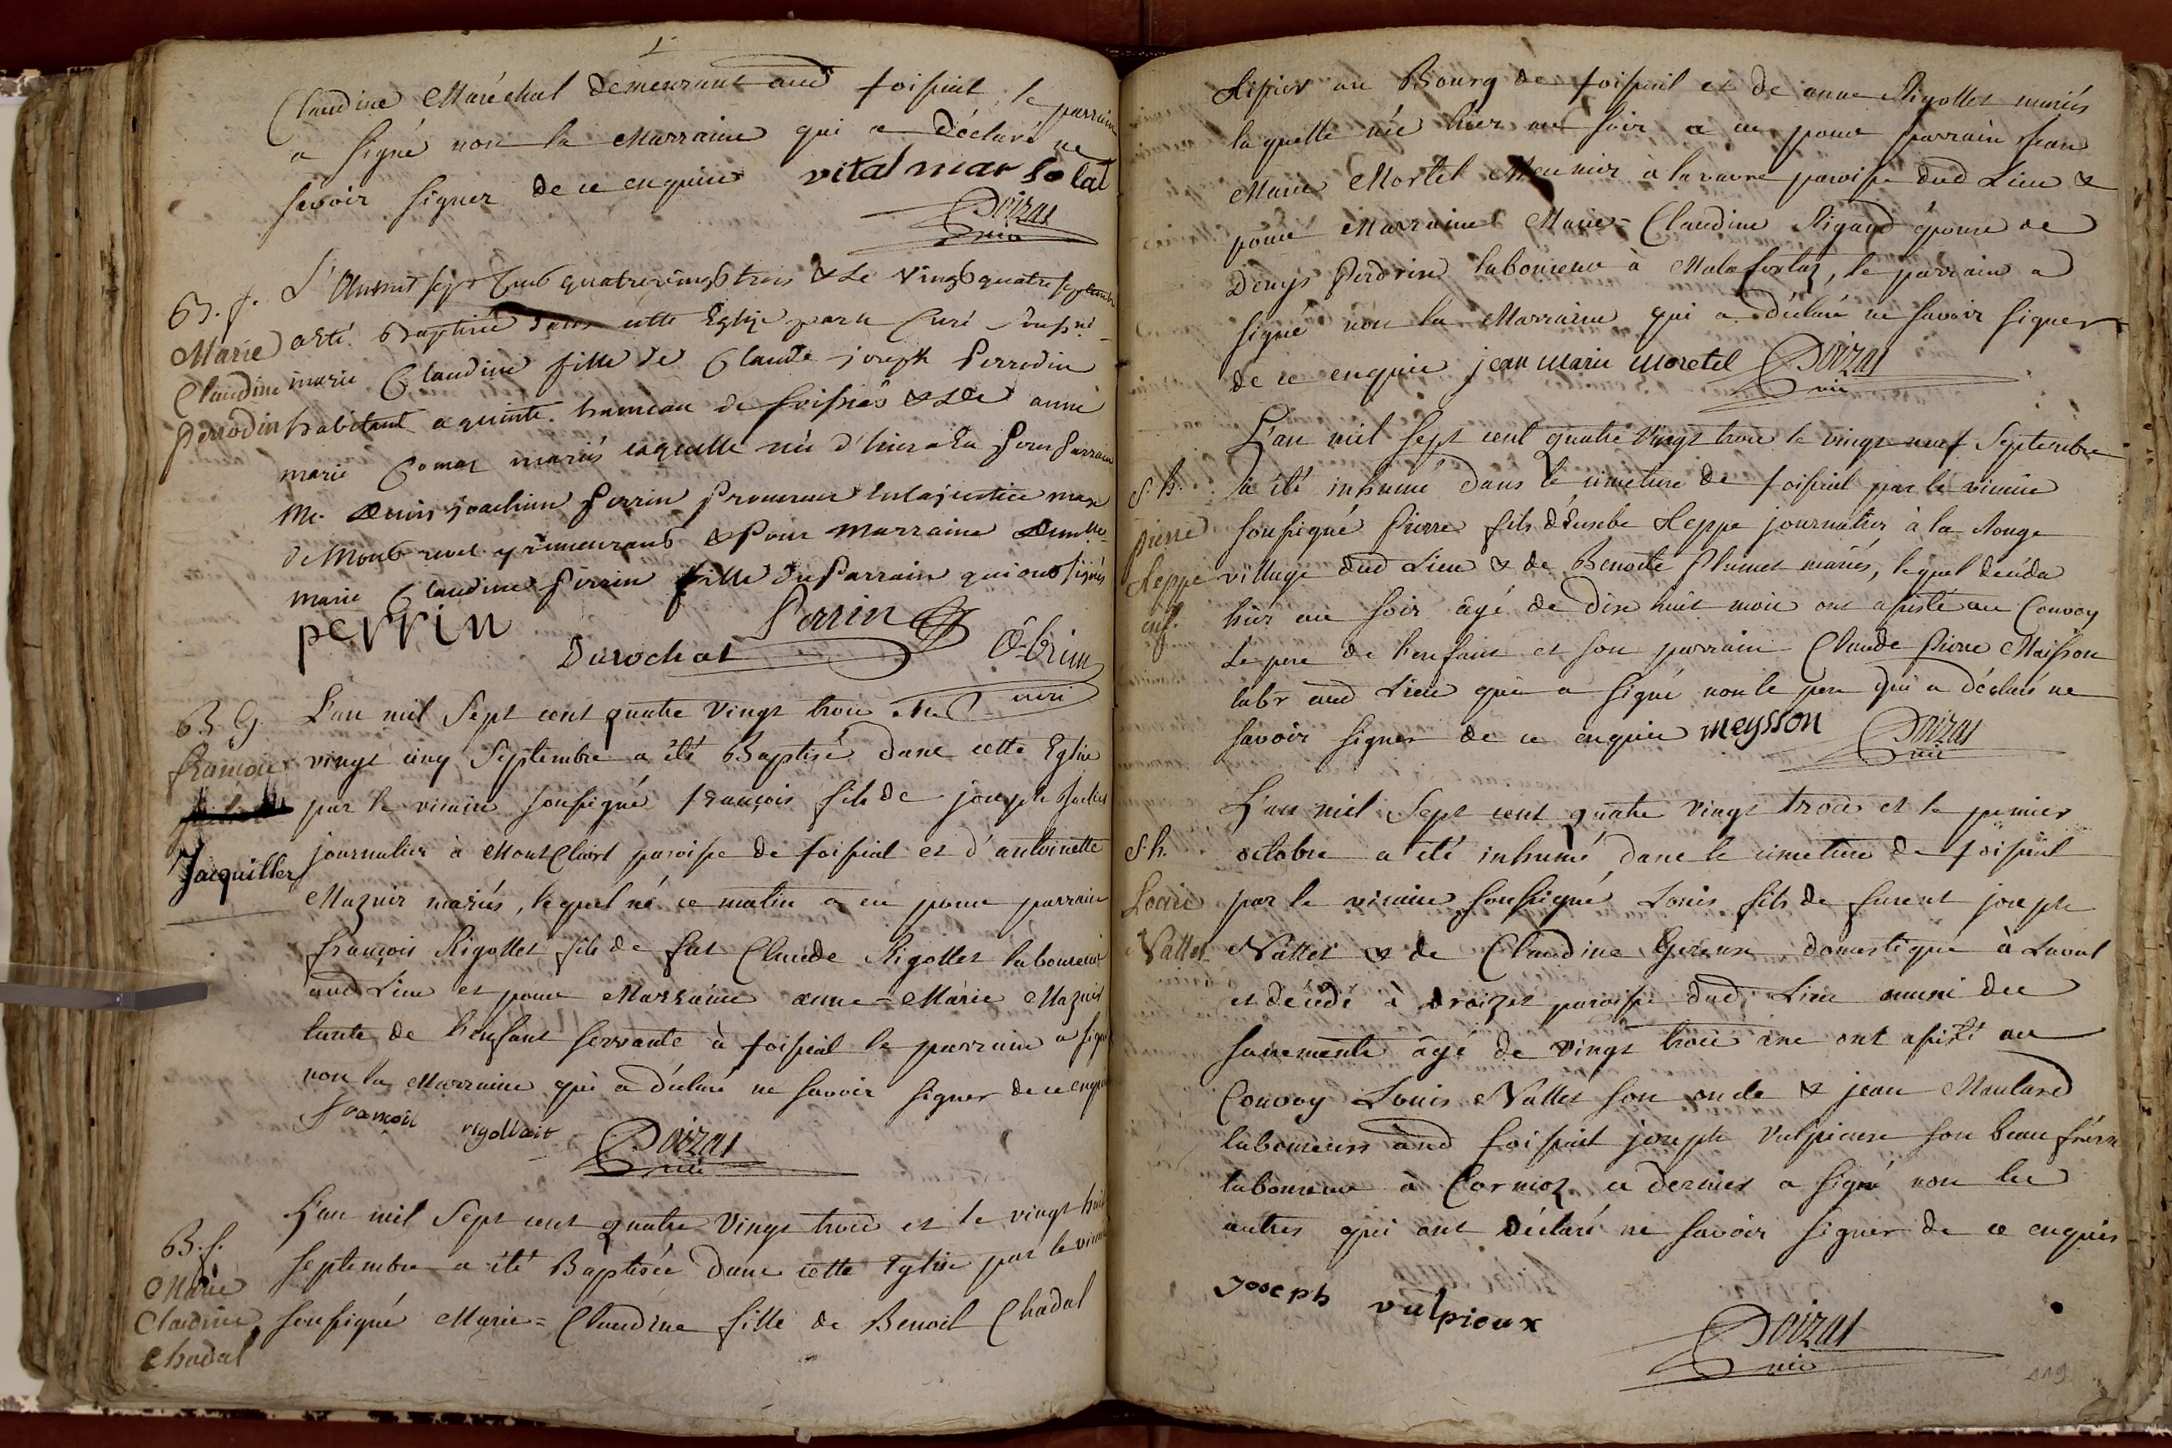 Claudine Maréchal demeurant aud foissiat, le parrain
a signé non la Marraine qui a déclaré ne
savoir signer de ce enquise vital mar solat
Poizat
vic
B. f. L'An mil sept Cens quatrevingts trois & Le vingt quatre septembre
Marie a été Baptisée dans cette Eglise par le Curé soussné
Claudine marie Claudine fille de Claude joseph Perrodin
perrodin habitant a quinte hameau de foissiat & de anne
marie Comas mariés laquelle née d'hier a Eu pour Parrain
Me. Denis joachim Perrin Procureur en la justice mage
de Montrevel y demeurant & Pour Marraine Demlle
marie Claudine Perrin fille du Parrain qui ont signés
perrin Perrin
Durochat
curé
B. G. L'an mil Sept cent quatre Vingt trois et le
françois vingt cinq Septembre a été Baptisé dans cette Eglise
par le vicaire soussigné françois fils de joseph
Jacquillet journalier à MontClair paroisse de foissiat et d'antoinette
Mazuir mariés, lequel né ce matin a eu pour parrain
françois Rigollet fils de fut Claude Rigollet laboureur
aud Lieu et pour Marraine anne=Marie Mazuir
tante de l'enfant servante à foissiat le parrain a signé
non la Marraine qui a déclaré ne savoir signer de ce enquise
francoi rigollait Poizat
vic
L'an mil Sept cent quatre Vingt trois et le vingt huit
B. f. septembre a été Baptisée dans cette Eglise par le vicaire
Marie
Claudine soussigné Marie=Claudine fille de Benoit Chadal
Chadal
au Bourg de foissiat et de anne Rigollet mariés
laquelle née hier au soir a eu pour parrain Jean
Marie Mortel Meunier à lavavre paroisse dud Lieu &
pour Marraine Marie=Claudine Rigaud épouse de
Denys Perdrin laboureur à Malafretaz, le parrain a
signé non la Marraine qui a déclaré ne savoir signer
de ce enquise jean marie moretel Poizat
vic
L'an mil Sept cent quatre Vingt trois le vingt neuf Septembre
S. h. a été inhumé dans le cimetiere de foissiat par le vicaire
pierre soussigné Pierre fils d'Eusebe Reppe journalier à la Rouge
Reppe village dud Lieu & de Benoite Plumet mariés, lequel décéda
enf. hier au soir âgé de dix huit mois ont assisté au Convoy
Le pere de l'enfant et son parrain Claude Pierre Maisson
labr aud Lieu qui a signé non le pere qui a déclaré ne
savoir signer de ce enquis meysson Poizat
vic
L'an mil Sept cent quatre Vingt trois et le premier
S. h. octobre a été inhumé dans le cimetiere de foissiat
Louis par le vicaire soussigné Louis fils de furent joseph
Nallet Nallet & de Claudine domestique à Laval
et décédé à Croizet paroisse dud Lieu muni des
sacrements âgé de vingt trois ans ont assisté au
Convoy Louis Nallet son oncle & jean Moulard
laboureurs aud foissiat joseph Vulpieux son beau frére
laboureur à Cormoz ce dernier a signé non les
autres qui ont déclaré ne savoir signer de ce enquis
Joseph vulpieux
Poizat
vic
119